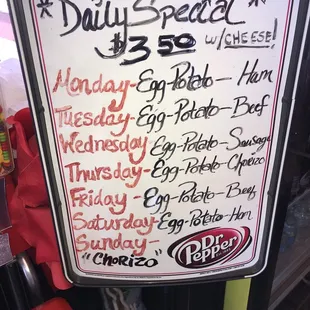 * Daily Special *
$3.50 w/CHEESE!
Monday-Egg-Potato-Ham
Tuesday-Egg-Potato-Beef
Wednesday-Egg-Potato-Sausage
Thursday-Egg-Potato-Chorizo
Friday-Egg-Potato-Beef
Saturday-Egg-Potato-Ham
Sunday-
"CHORIZO"
Dr Pepper